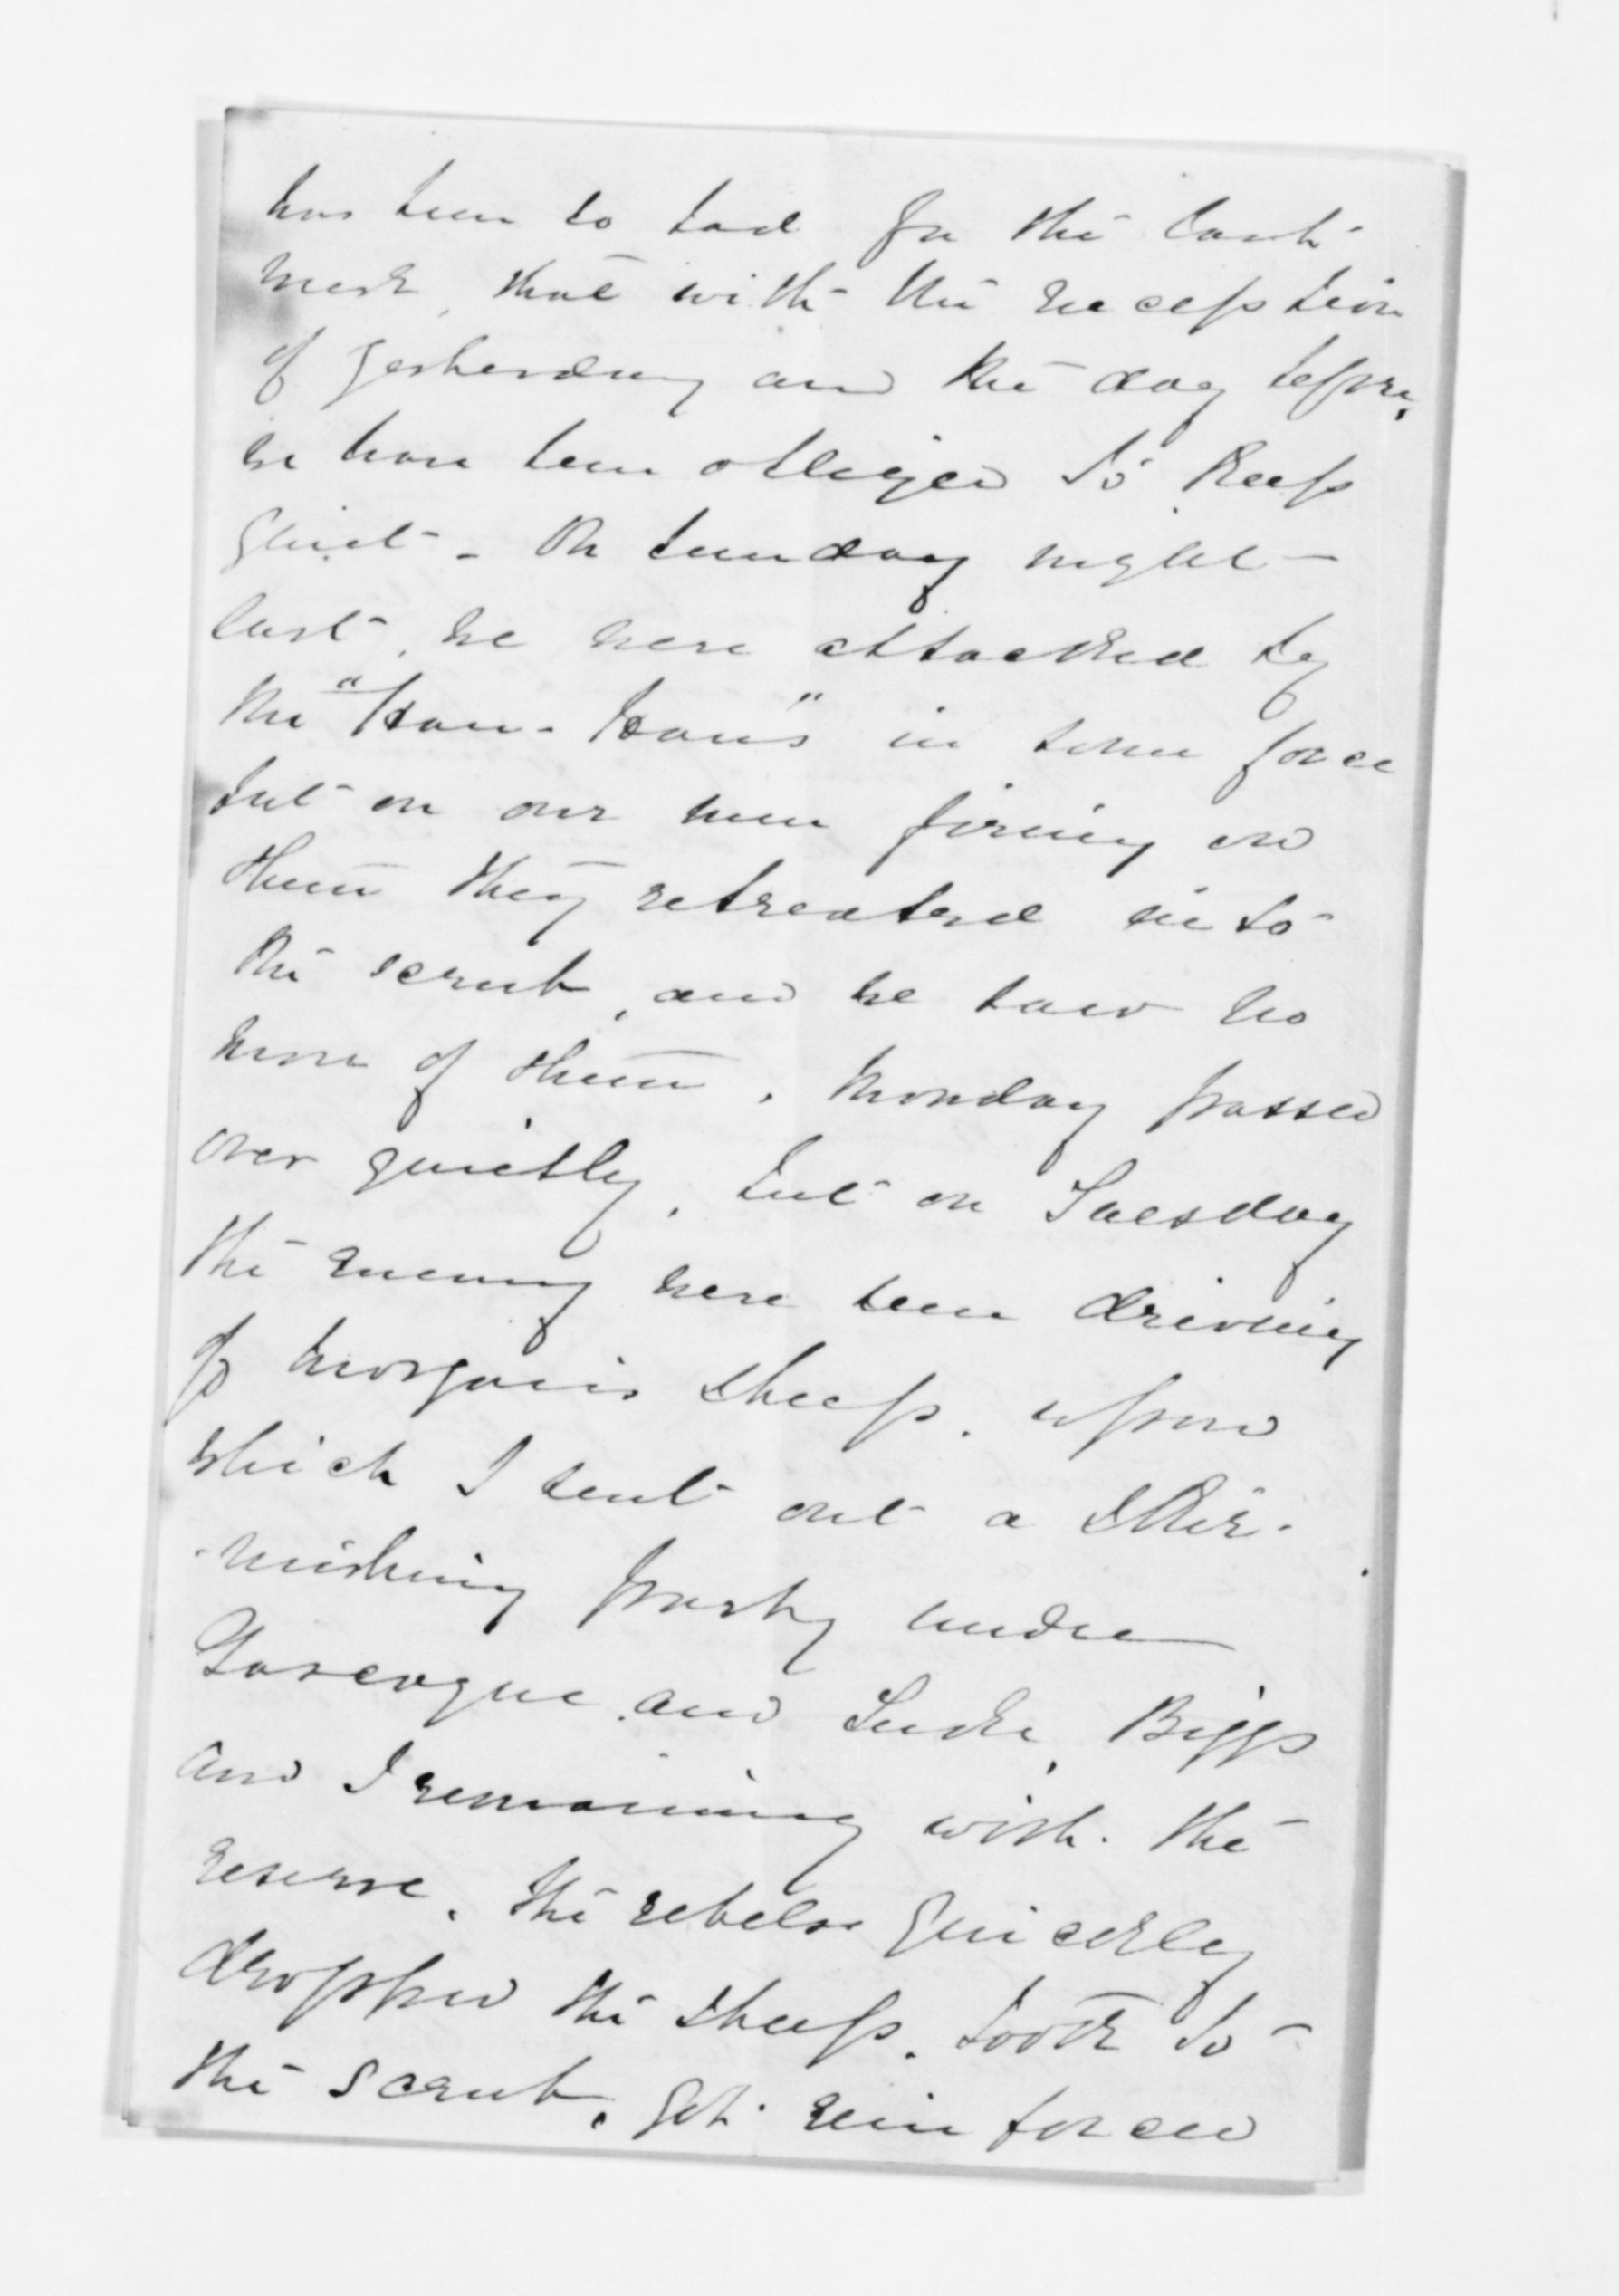 has been so bad for the last
week, that with the exception
of yesterday and the day before,
we have been obliged to keep
quiet - On Sunday night
last, we were attacked by
the "Hau-Haus" in some force
but on our men firing on
them they retreated into
the scrub, and we saw no
more of them. Monday passed
over quietly, but on Tuesday
the enemy were seen driving
off Morgan's sheep, upon
which I sent out a skir-
-mishing party under
Gascoyne and Tuke, Biggs
and I remaining with the
reserve. The rebels quickly
dropped the sheep, took to
the scrub, got reinforced